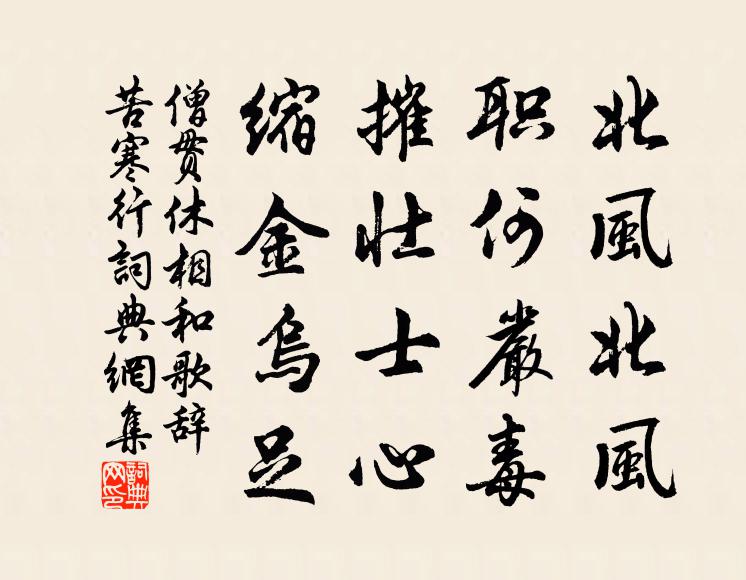 北風北風
职何嚴毒
摧壮士心
缩金烏足
僧貫休相和歌辞
苦寒行詞典網集
詞典
网印